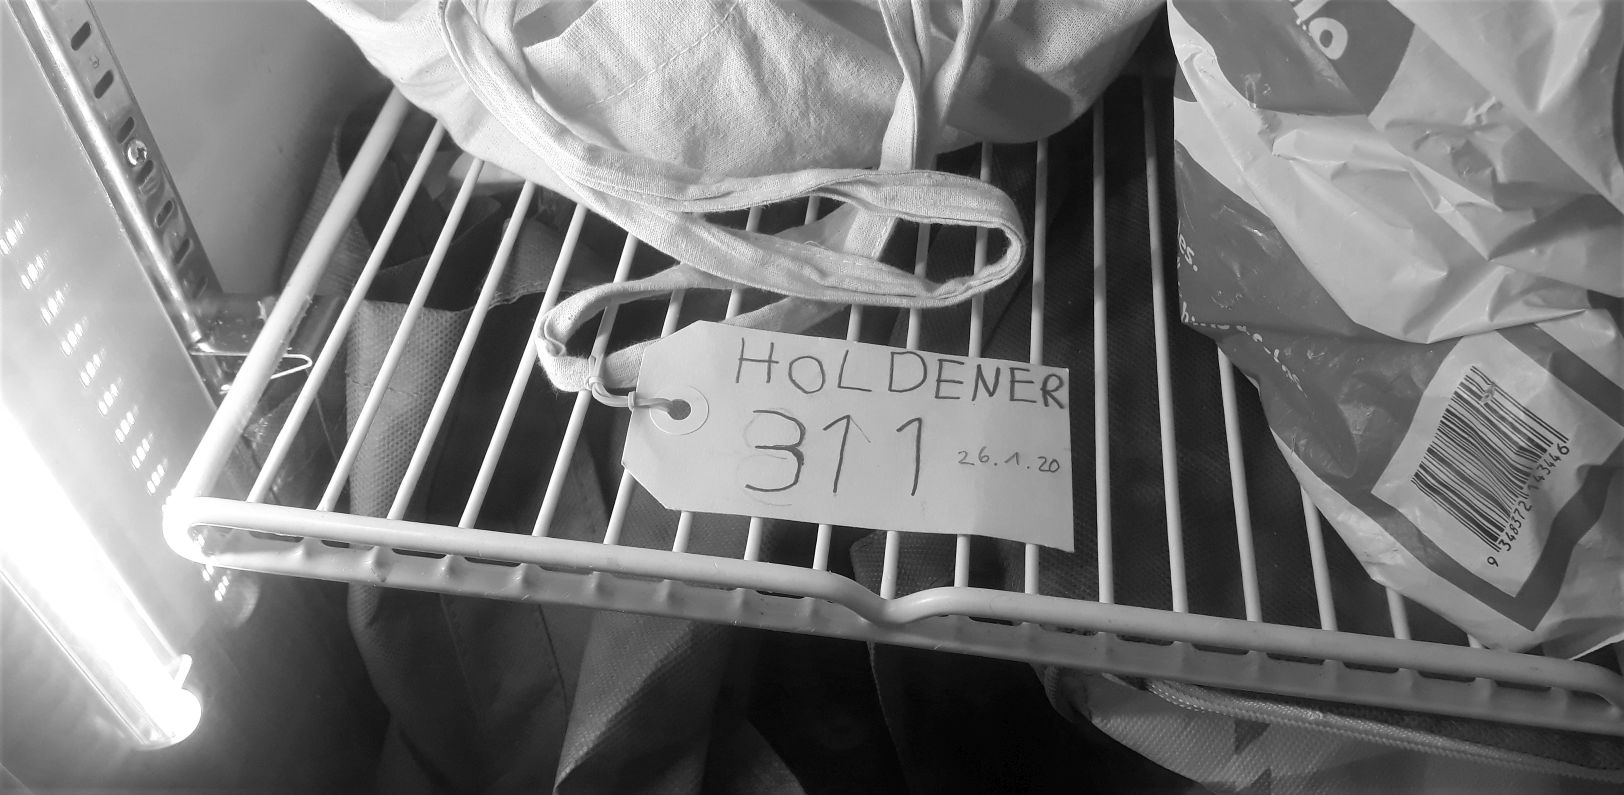 HOLDENER
311
26.1.20
es.
9 348372 143446